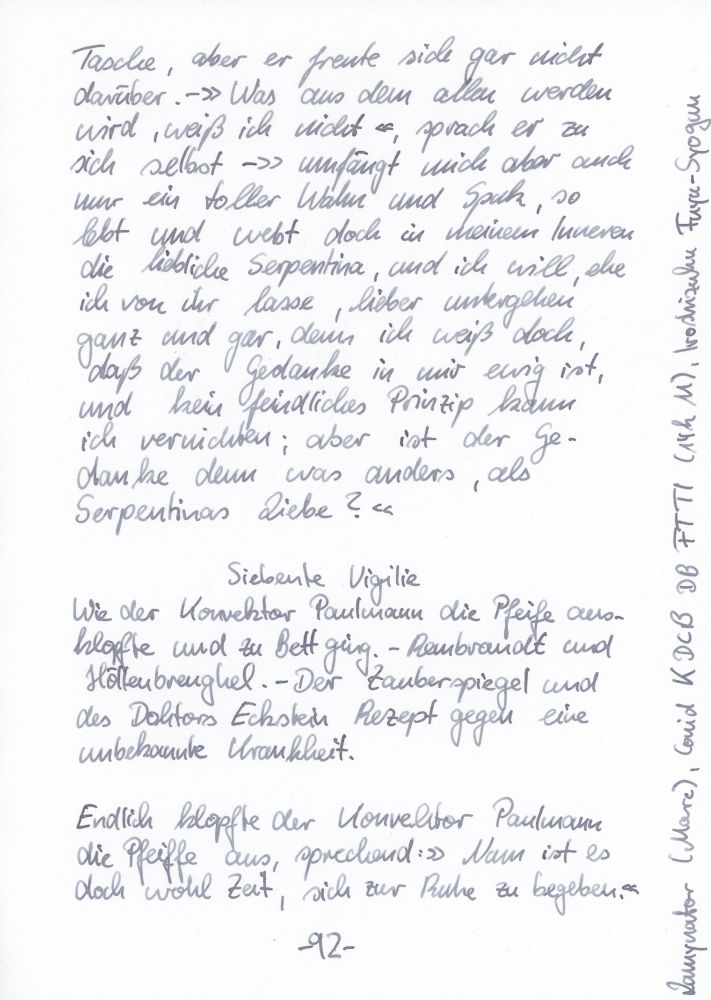 Tasche, aber er freute sich gar nicht
darüber. -»Was aus dem allen werden
wird, weiß ich nicht«, sprach er zu
sich selbst -» umfängt mich aber auch
nur ein toller Wahn und Spuk, so
lebt und webt doch in meinem Inneren
die liebliche Serpentina, und ich will, ehe
ich von ihr lasse, lieber untergehen
ganz und gar, denn ich weiß doch,
daß der Gedanke in mir ewig ist,
und kein feindliches Prinzip kann
ich vernichten; aber ist der Ge-
danke denn was anders, als
Serpentinas Liebe?«
Siebente Vigilie
Wie der Konrektor Paulmann die Pfeife aus-
klopfte und zu Bett ging. - Rembrandt und
Höllenbreughel. - Der Zauberspiegel und
des Doktors Eckstein Rezept gegen eine
unbekannte Krankheit.
Endlich klopfte der Konrektor Paulmann
die Pfeiffe aus, sprechend:» Nun ist es
doch wohl Zeit, sich zur Ruhe zu begeben.«
-92-
(Marc), Covid KDCB DB FTTI (14h M), Fuyu-Syogun